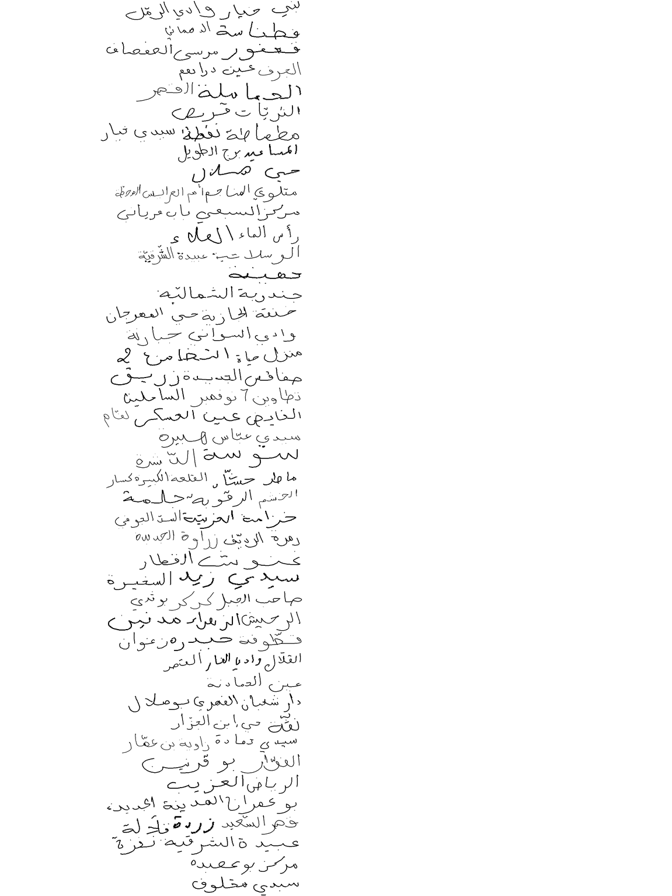 بني خيار وادي الرمل
فطناسة الدخماني
فعفور مرسى الصفصاف
الجرف عين دراهم
الحماملة القصر
الثريات قربص
مطماطة نفطة سيدي خيار
المساعيد برج الطويل
حي هلال
متلوي المناجم أم العرائس المحطة
مركز السبعي باب قرباني
رأس الماء العلاء
الوسلاتية عميرة الشرقية
جهينة
جندوبة الشمالية
خنقة الجازية حي المهرجان
وادي السواني جبارنة
منزل حياة التضامن 2
صفاقس الجديدة زريق
تطاوين 7 نوفمبر الساحلين
الفايض عين العسكر
سيدي عباس هبيرة
سوسة
ماطر حشاد القلعة الكبيرة كسار
الجسم الرقوبة حلمة
خزامة العزيزية السد القومي
زهرة الرديف زراوة الجديدة
غنوش القطار
سيدي زيد السغيرة
صاحب الجبل كركر بوفدي
الرحيش الزهراء مدنين
قطوفة حيدرة زغوان
القلال وادي الغار
عين الحمادنة
دار شعبان الفهري بوهلال
نقة حي ابن الجزار
سيدي حمادة زاوية بن عمار
الفوار بو قرنين
الرياض العزيب
بو عمران المدينة الجديدة
قصر السعيد زردة
عميرة الشرقية نفزة
مركز بوعصيدة
سيدي مخلوف